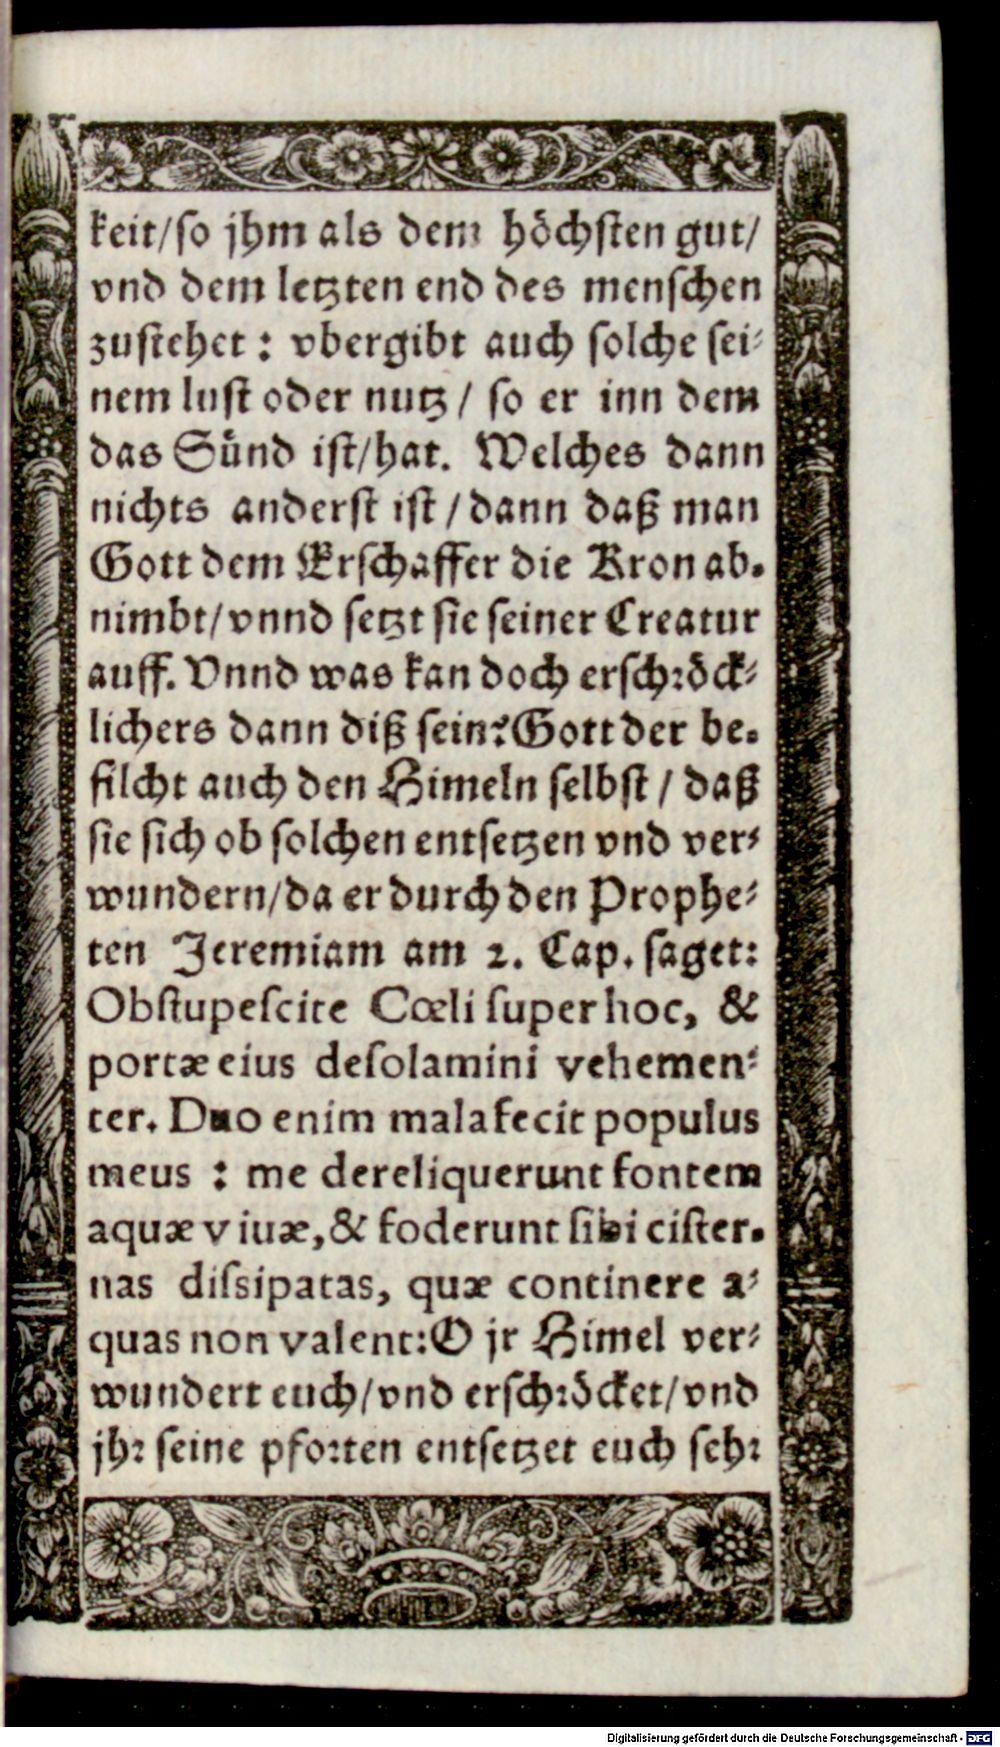 keit/so jhm als dem höchsten gut/
vnd dem letzten end des menschen
zustehet : vbergibt auch solche sei-
nem lust oder nutz / so er inn dem
das Sünd ist/hat. Welches dann
nichts anderst ist / dann daß man
Gott dem Erschaffer die Kron ab-
nimbt/vnnd setzt sie seiner Creatur
auff. Vnnd was kan doch erschröck-
lichers dann diß sein? Gott der be-
filcht auch den Himeln selbst / daß
sie sich ob solchen entsetzen vnd ver-
wundern/da er durch den Prophe-
ten Jeremiam am 2. Cap. saget:
Obstupescite Cœli super hoc, &
portæ eius desolamini vehemen-
ter. Duo enim mala fecit populus
meus : me dereliquerunt fontem
aquæ viuæ, & foderunt sibi cister-
nas dissipatas, quæ continere a-
quas non valent: O jr Himel ver-
wundert euch/vnd erschröcket/vnd
jhr seine pforten entsetzet euch sehr
Digitalisierung gefördert durch die Deutsche Forschungsgemeinschaft - DFG